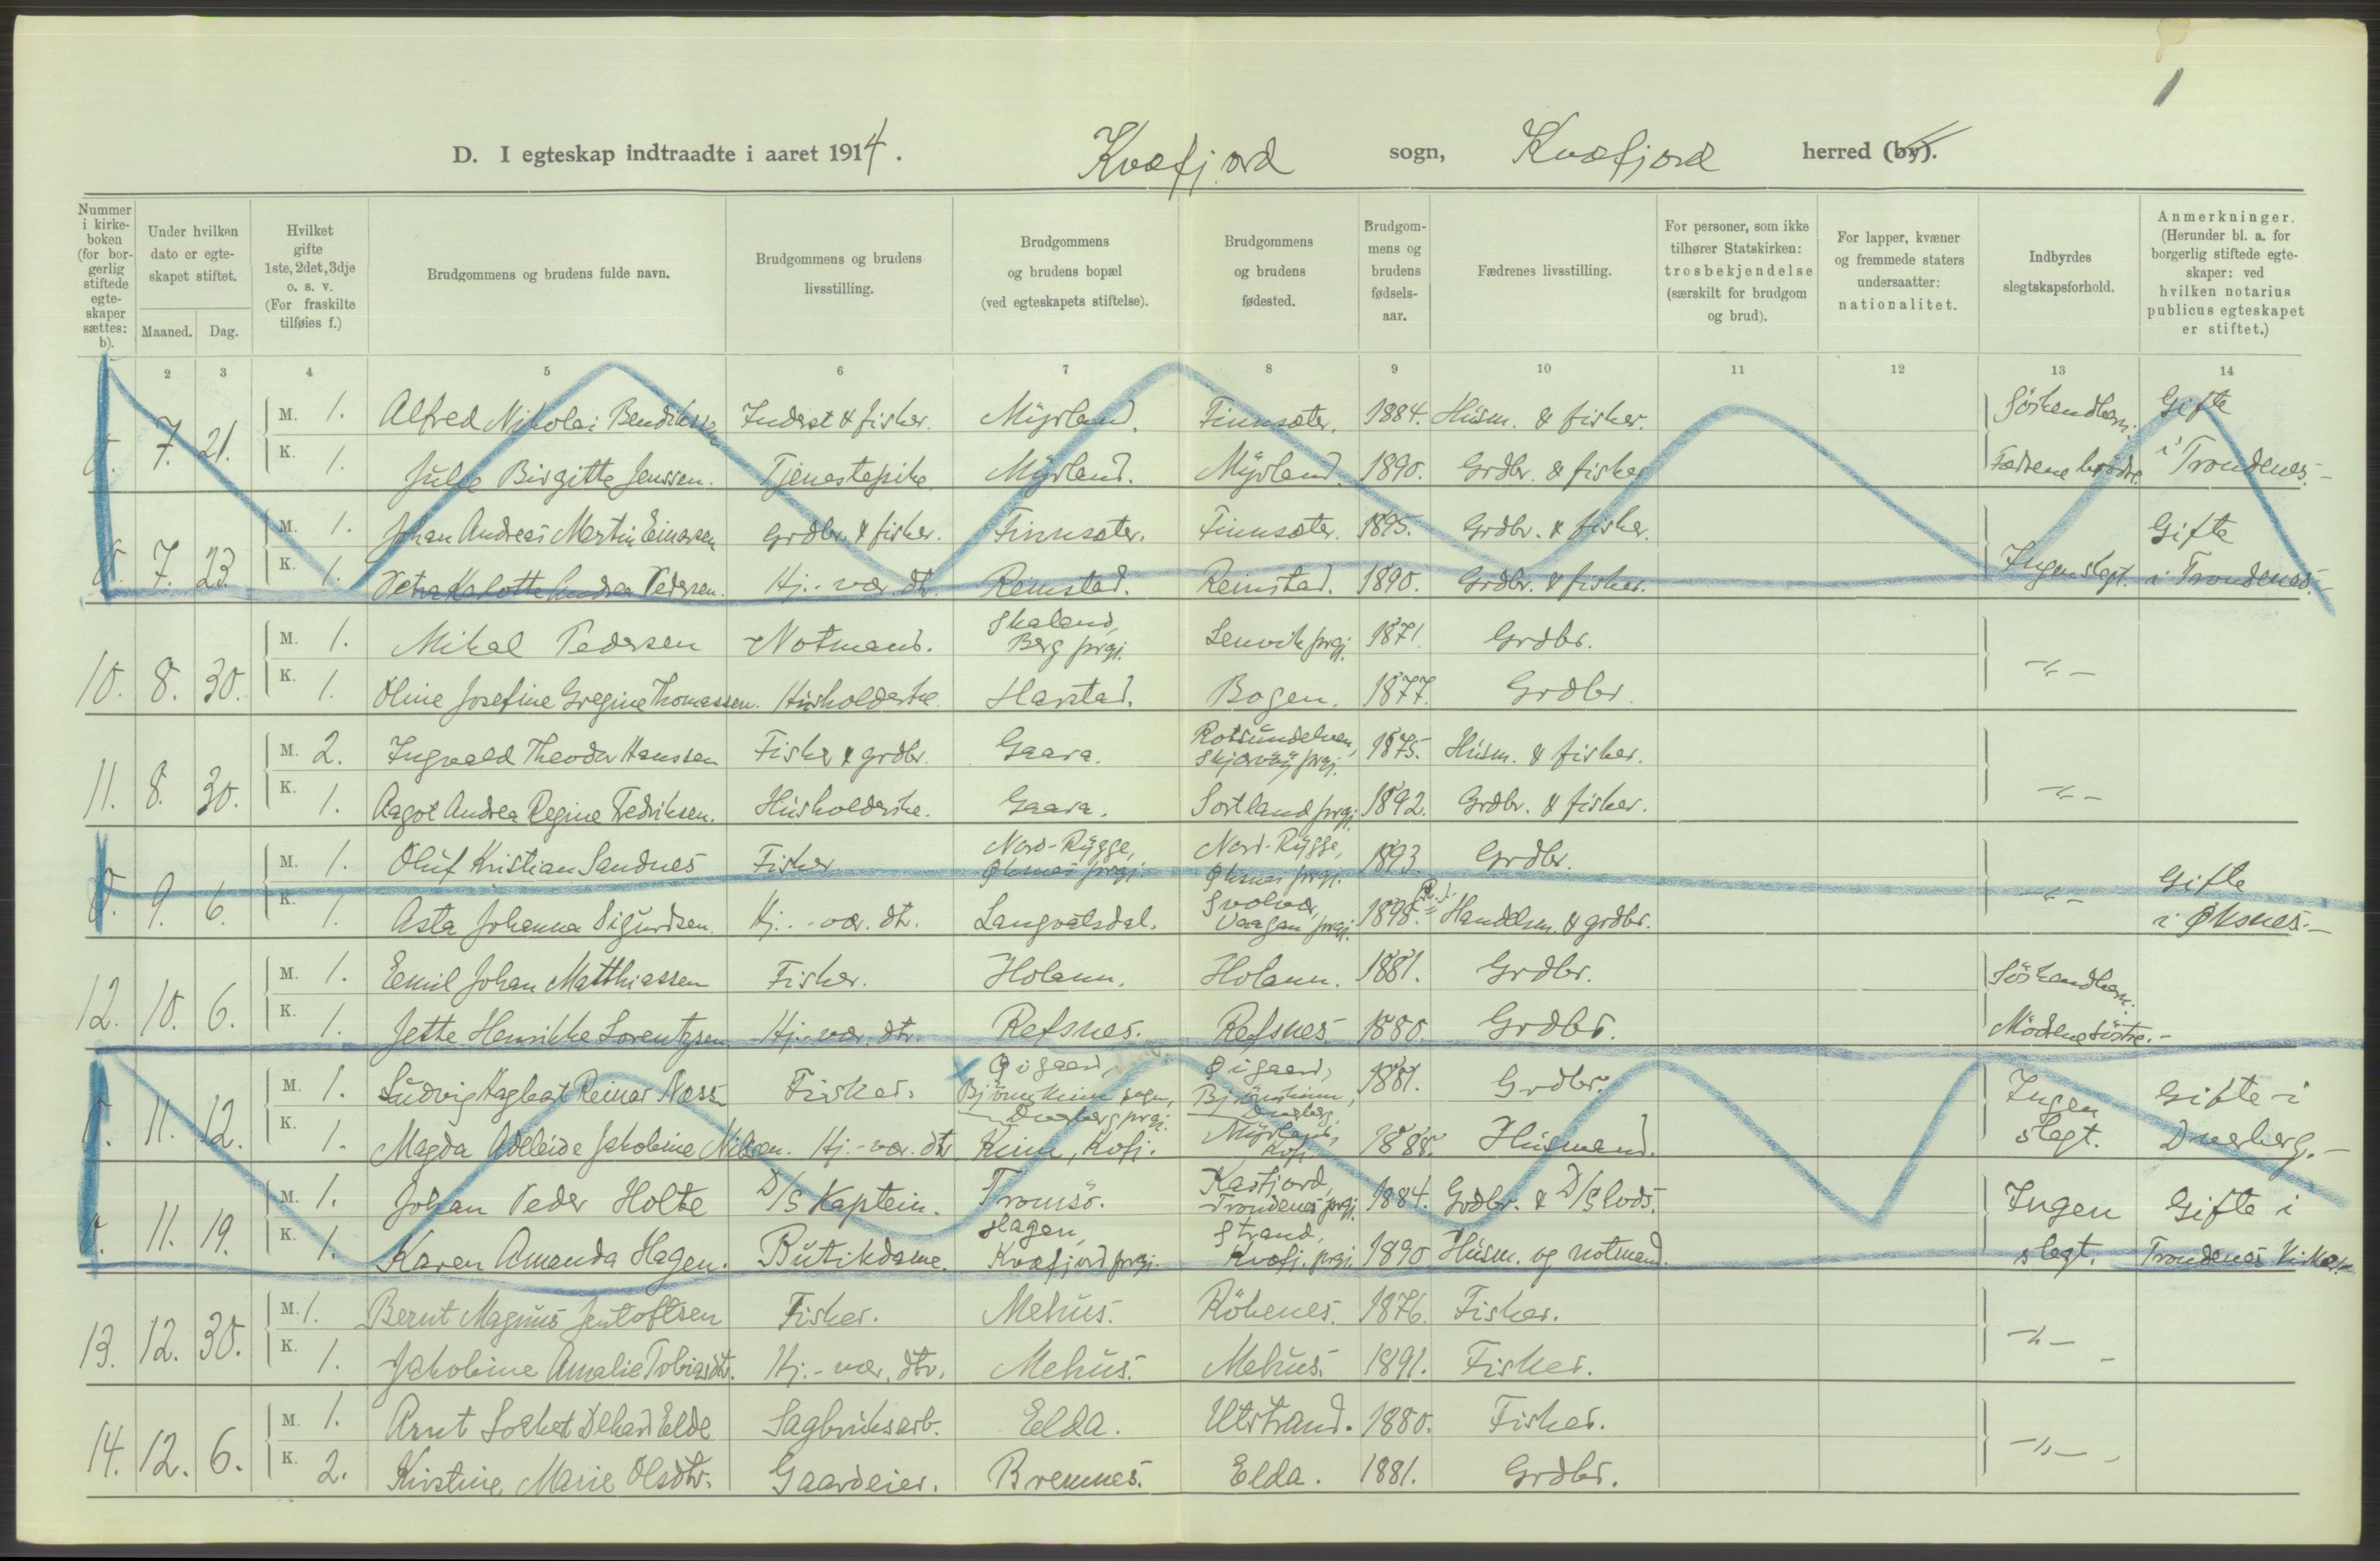 1
D. I egteskap indtraadte i aaret 1914. Kvæfjord sogn, Kvæfjord herred (by).
Nummer i kirke-boken (for bor-gerlig stiftede egte-skaper sættes: b).
Under hvilken dato er egte-skapet stiftet.
Maaned. Dag.
Hvilket gifte 1ste, 2det, 3dje o. s. v. (For fraskilte tilføies f.)
Brudgommens og brudens fulde navn.
Brudgommens og brudens livsstilling.
Brudgommens og brudens bopæl (ved egteskapets stiftelse).
Brudgommens og brudens fødested.
Brudgom-mens og brudens fødsels-aar.
Fædrenes livsstilling.
For personer, som ikke tilhører Statskirken: trosbekjendelse (særskilt for brudgom og brud).
For lapper, kvæner og fremmede staters undersaatter: nationalitet.
Indbyrdes slegtskapsforhold.
Anmerkninger. (Herunder bl. a. for borgerlig stiftede egte-skaper: ved hvilken notarius publicus egteskapet er stiftet.)
2 3 4 5 6 7 8 9 10 11 12 13 14
7. 21. M. 1. Alfred Nikolai Bendikssen Inderst & fisker. Myrland. Finnsæter. 1884. Husm. & fisker. Söskendbarn. Gifte
K. 1. Julie Birgitte Jenssen. Tjenestepike. Myrland. Myrland. 1890. Grdbr. & fisker Fædrene brødre. i Trondenes.-
7. 23. M. 1. Johan Andreas Martin Einarsen Grdbr. & fisker. Finnsæter. Finnsæter. 1895. Grdbr. & fisker. Gifte
K. 1. Petra Karlotte Andrea Pedersen. Hj.-vær. dtr. Reinstad. Reinstad. 1890. Grdbr. & fisker. Ingen slegt. i Trondenes.-
10. 8. 30. M. 1. Mikal Pedersen Notmand. Skaland, Berg prgj. Lenvik prgj. 1871. Grdbr. -"-
K. 1. Oline Josefine Gregine Thomassen. Husholderske. Harstad. Bogen. 1877. Grdbr.
11. 8. 30. M. 2. Ingvald Theodor Hanssen Fisker & grdbr. Gaara. Rotsundelven, Skjærvöy prgj. 1875. Husm. & fisker.
K. 1. Aagot Andrea Regine Fedriksen. Husholderske. Gaara. Sortland prgj. 1892. Grdbr. & fisker. -"-
9. 6. M. 1. Oluf Kristian Sandnes Fisker Nord-Rygge, Øksnes prgj. Nord-Rygge, Øksnes prgj. 1893. Grdbr. -"- Gifte
K. 1. Asta Johanna Sigurdsen. Hj.-vær. dtr. Langvatsdal. Svolvær, Vaagan prgj. 1895. Handelsm. & grdbr. i Øksnes.-
12. 10. 6. M. 1. Eemil Johan Matthiassen Fisker. Holann. Holann. 1881. Grdbr. Söskendbarn.
K. 1. Jette Henrikke Lorentzsen. Hj.-vær. dtr. Refsnes. Refsnes 1880. Grdbr. Mödrene söstre.-
11. 12. M. 1. Ludvig Hagbart Reinar Næss Fisker. Øigaard, Bjørnskinn sogn, Dverberg prgj. Øigaard, Bjørnskinn, Dverberg 1881. Grdbr. Ingen Gifte i
K. 1. Magda Adeleide Jakobine Nilsen. Hj.-vær. dtr. Kinn, Kvfj. Myrland, Kvfj. 1888. Husmand. slegt. Dverberg.-
11. 19. M. 1. Johan Peder Holte D/S Kaptein. Tromsö. Kasfjord, Trondenes prgj. 1884. Grdbr. & D/S lods. Ingen Gifte i
K. 1. Karen Amanda Hagen. Butikdame. Hagen, Kvæfjord prgj. Strand, Kvæfj. prgj. 1890 Husm. og notmand. slegt. Trondenes Kirke.-
13. 12. 30. M. 1. Bernt Magnus Jentoftsen Fisker. Mehus. Rökenes. 1876. Fisker. -"-
K. 1. Jakobine Amalie Tobiasdtr. Hj.-vær. dtr. Mehus. Mehus. 1891. Fisker.
14. 12. 6. M. 1. Arnt Elde Sagbruksarb. Elda. Utstrand. 1880. Fisker. -"-
K. 2. Kristine Marie Olsdtr. Gaardeier. Bremnes. Elda. 1881. Grdbr.